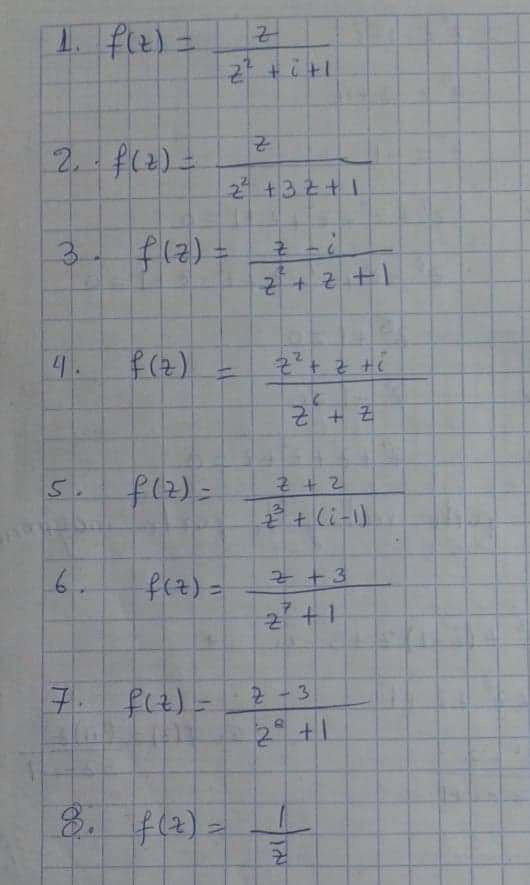 1. f(z) = z / z² + i + 1
2. f(z) = z / z² + 3z + 1
3. f(z) = z - i / z² + z + 1
4. f(z) = z² + z + i / z⁶ + z
5. f(z) = z + 2 / z³ + (i-1)
6. f(z) = z + 3 / z⁷ + 1
7. f(z) = z - 3 / z⁸ + 1
8. f(z) = 1 / z̄